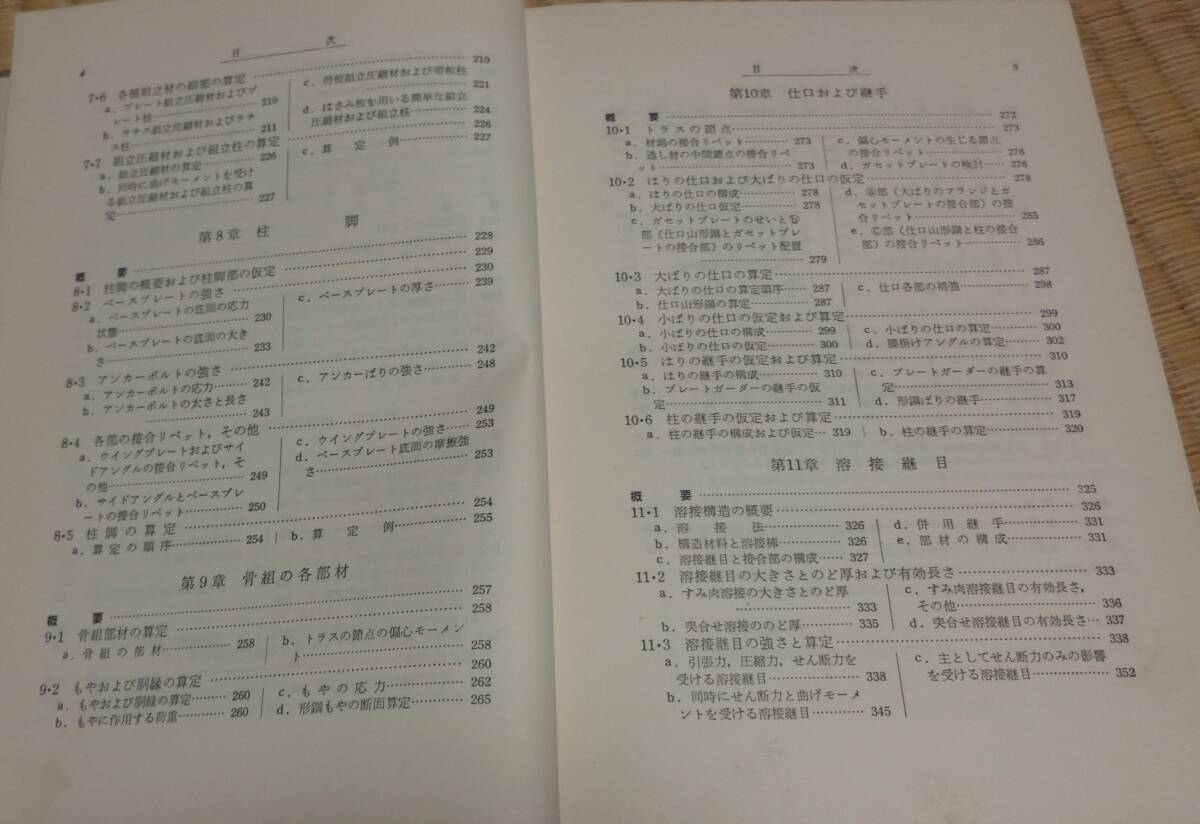 目 次
4
7・6 各種組立材の細部の算定 210
a．プレート組立圧縮材およびプ
レート柱 210
b．ラチス組立圧縮材およびラチ
ス柱 211
c．帯板組立圧縮材および帯板柱
221
d．はさみ板を用いる簡単な組立
圧縮材および組立柱 224
7・7 組立圧縮材および組立柱の算定 226
a．組立圧縮材の算定 226
b．同時に曲げモーメントを受け
る組立圧縮材および組立柱の算
定 227
c．算定例 227
第8章 柱脚
概要 228
8・1 柱脚の概要および柱脚部の仮定 229
8・2 ベースプレートの強さ 230
a．ベースプレートの底面の応力
状態 230
b．ベースプレートの底面の大き
さ 233
c．ベースプレートの厚さ 239
8・3 アンカーボルトの強さ 242
a．アンカーボルトの応力 242
b．アンカーボルトの太さと長さ
243
c．アンカーばりの強さ 248
8・4 各部の接合リベット，その他 249
a．ウイングプレートおよびサイ
ドアングルの接合リベット，そ
の他 249
b．サイドアングルとベースプレ
ートの接合リベット 250
c．ウイングプレートの強さ 253
d．ベースプレート底面の摩擦強
さ 253
8・5 柱脚の算定 254
a．算定の順序 254
b．算定例 255
第9章 骨組の各部材
概要 257
9・1 骨組部材の算定 258
a．骨組の部材 258
b．トラスの節点の偏心モーメン
ト 258
9・2 もやおよび胴縁の算定 260
a．もやおよび胴縁の算定 260
b．もやに作用する荷重 260
c．もやの応力 262
d．形鋼もやの断面算定 265
目 次
5
第10章 仕口および継手
概要 272
10・1 トラスの節点 273
a．材端の接合リベット 273
b．通し材の中間節点の接合リベ
ット 273
c．偏心モーメントの生じる節点
の接合リベット 276
d．ガセットプレートの検討 276
10・2 はりの仕口および大ばりの仕口の仮定 278
a．はりの仕口の構成 278
b．大ばりの仕口仮定 278
c．ガセットプレートのせいとⓑ
部（仕口山形鋼とガセットプレ
ートの接合部）のリベット配置
279
d．ⓐ部（大ばりのフランジとガ
セットプレートの接合部）の接
合リベット 285
e．ⓒ部（仕口山形鋼と柱の接合
部）の接合リベット 286
10・3 大ばりの仕口の算定 287
a．大ばりの仕口の算定順序 287
b．仕口山形鋼の算定 287
c．仕口各部の補強 298
10・4 小ばりの仕口の仮定および算定 299
a．小ばりの仕口の構成 299
b．小ばりの仕口の仮定 300
c．小ばりの仕口の算定 300
d．腰掛けアングルの算定 302
10・5 はりの継手の仮定および算定 310
a．はりの継手の構成 310
b．プレートガーダーの継手の仮
定 311
c．プレートガーダーの継手の算
定 313
d．形鋼ばりの継手 317
10・6 柱の継手の仮定および算定 319
a．柱の継手の構成および仮定 319
b．柱の継手の算定 320
第11章 溶接継目
概要 325
11・1 溶接構造の概要 326
a．溶接法 326
b．構造材料と溶接棒 326
c．溶接継目と接合部の構成 327
d．併用継手 331
e．部材の構成 331
11・2 溶接継目の大きさとのど厚および有効長さ 333
a．すみ肉溶接の大きさとのど厚
333
b．突合せ溶接ののど厚 335
c．すみ肉溶接継目の有効長さ，
その他 336
d．突合せ溶接継目の有効長さ 337
11・3 溶接継目の強さと算定 338
a．引張力，圧縮力，せん断力を
受ける溶接継目 338
b．同時にせん断力と曲げモーメ
ントを受ける溶接継目 345
c．主としてせん断力のみの影響
を受ける溶接継目 352